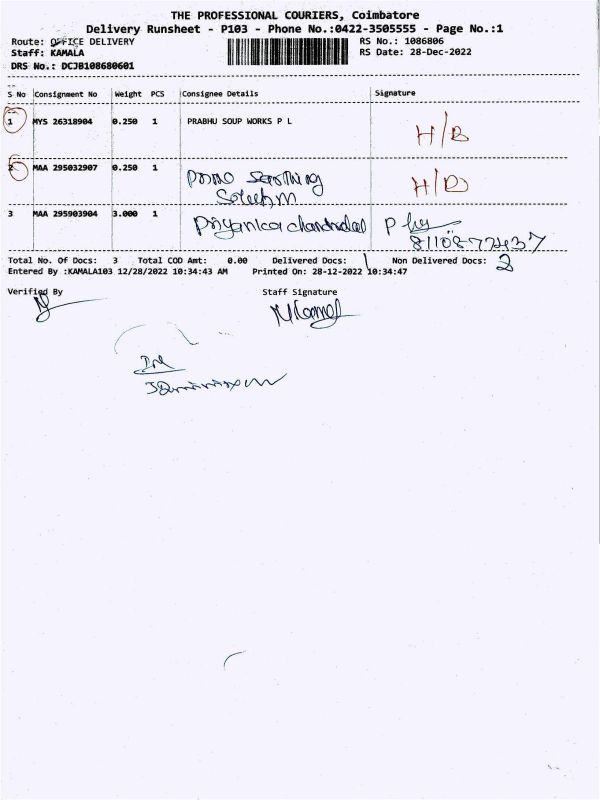 THE PROFESSIONAL COURIERS, Coimbatore
Delivery Runsheet - P103 - Phone No.:0422-3505555 - Page No.:1
Route: OFFICE DELIVERY RS No.: 1086806
Staff: KAMALA RS Date: 28-Dec-2022
DRS No.: DCJB108680601
S No Consignment No Weight PCS Consignee Details Signature
1 MYS 26318904 0.250 1 PRABHU SOUP WORKS P L H/D
2 MAA 295032907 0.250 1 H/D
3 MAA 295903904 3.000 1 Priyanka P
8110877437
Total No. Of Docs: 3 Total COD Amt: 0.00 Delivered Docs: 1 Non Delivered Docs: 2
Entered By :KAMALA103 12/28/2022 10:34:43 AM Printed On: 28-12-2022 10:34:47
Verified By Staff Signature